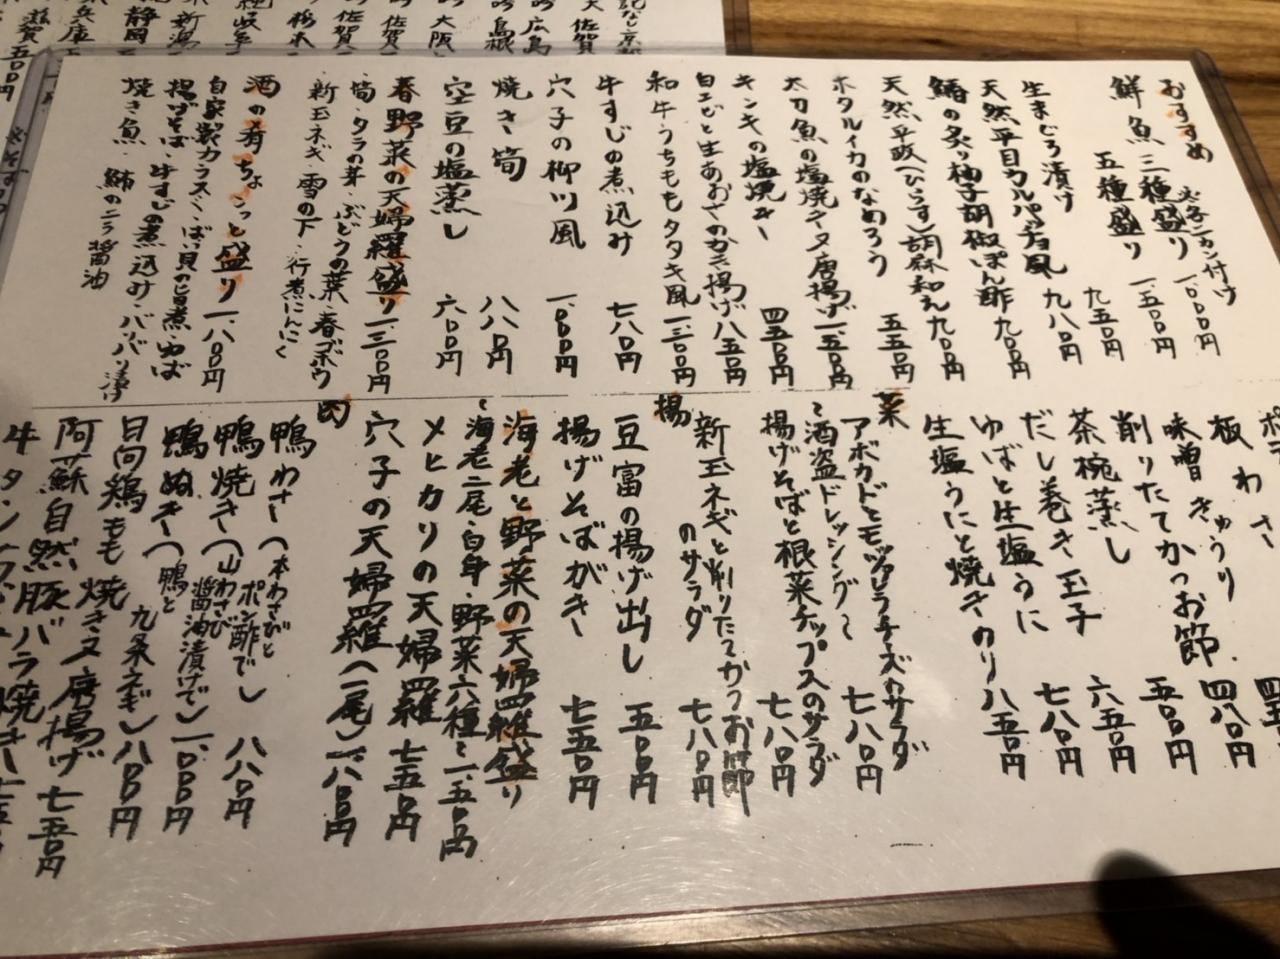 おすすめ
※各二カン付け
鮮魚 三種盛り 一、〇〇〇円
五種盛り 一、五〇〇円
生まぐろ漬け 九五〇円
天然平目カルパッチョ風 九八〇円
鰆の炙り柚子胡椒ぽん酢 九〇〇円
天然平政(ひらす)胡麻和え 九〇〇円
ホタルイカのなめろう 五五〇円
太刀魚の塩焼き又唐揚げ 一、五〇〇円
キンキの塩焼き 四五〇〇円
白エビと生あおさのかき揚げ 八五〇円
和牛うちももタタキ風 一、三〇〇円
牛すじの煮込み 七八〇円
穴子の柳川風 一、〇〇〇円
焼き筍 八八〇円
空豆の塩蒸し 六〇〇円
春野菜の天婦羅盛り 一、三〇〇円
筍・タラの芽・ぶどうの葉・春ゴボウ
新玉ネギ・雪の下・行者にんにく
酒の肴ちょこっと盛り 一、八〇〇円
自家製カラスミ・ばい貝の旨煮・ゆば
揚げそば・牛すじの煮込み・パリパリ漬け
焼き魚・鰤のニラ醤油
板わさ
味噌きゅうり 四八〇円
削りたてかつお節 五〇〇円
茶椀蒸し 六五〇円
だし巻き玉子 七八〇円
ゆばと生塩うに
生塩うにと焼きのり 八五〇円
菜
アボカドとモッツァレラチーズのサラダ
〜酒盗ドレッシング〜 七八〇円
揚げそばと根菜チップスのサラダ 七八〇円
新玉ネギと削りたてかつお節
のサラダ 七八〇円
揚
豆富の揚げ出し 五〇〇円
揚げそばがき 七五〇円
海老と野菜の天婦羅盛り
〜海老二尾・白身・野菜六種〜 一、五〇〇円
メヒカリの天婦羅 七五〇円
穴子の天婦羅(一尾) 一、八〇〇円
肉
鴨わさ(本わさびと
ポン酢で) 八八〇円
鴨焼き(山わさび
醤油漬けで) 一、〇〇〇円
鴨ぬき(鴨と
九条ネギ) 八〇〇円
日向鶏もも焼き又唐揚げ 七五〇円
阿蘇自然豚バラ焼き
牛タン